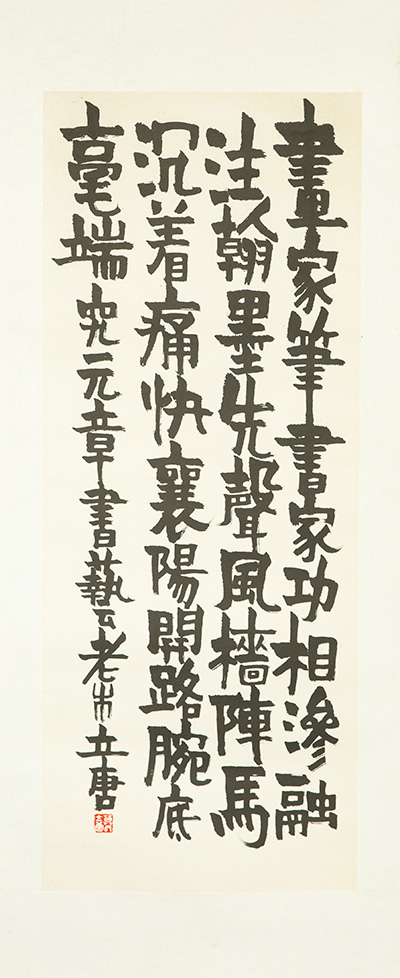 畫家筆書家功相滲融
注翰墨先聲風檣陣馬
沉着痛快襄陽開路腕底
毫端究元章書藝老立唐